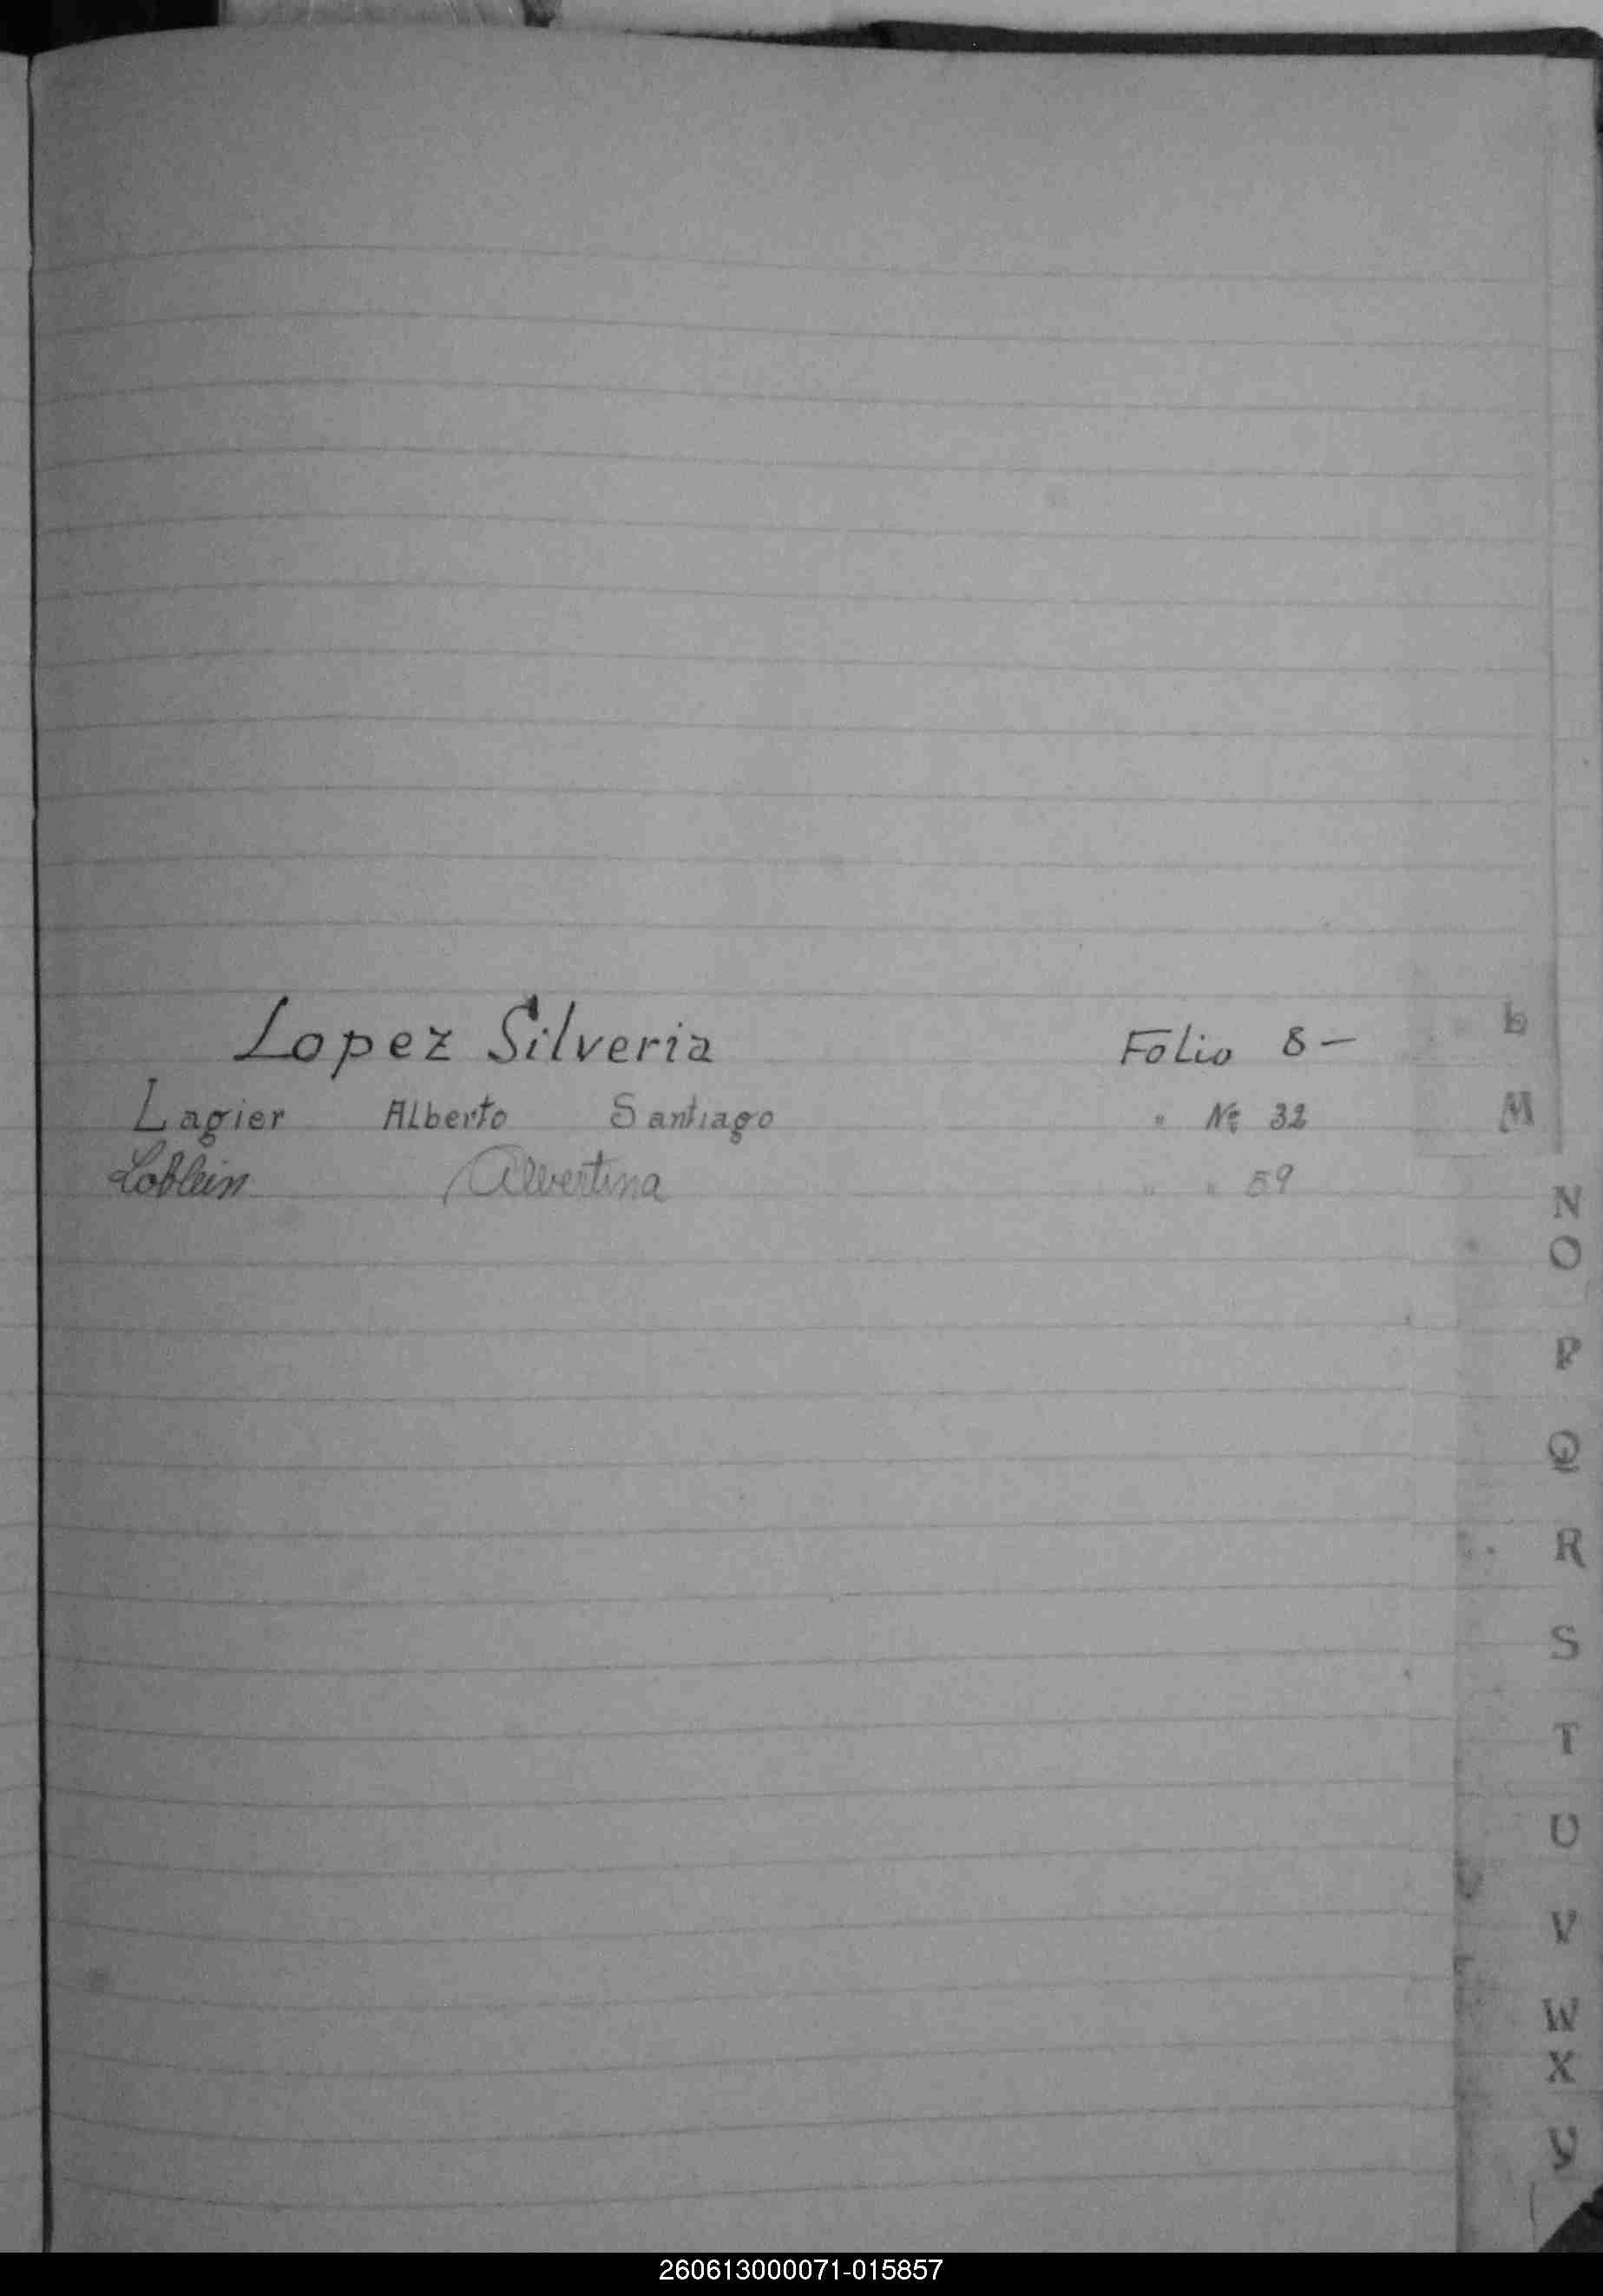 Lopez Silveria Folio 8 — L
Lagier Alberto Santiago " Nº 32 M
Loblein Albertina " " 59
N
O
P
Q
R
S
T
U
V
W
X
Y
260613000071-015857